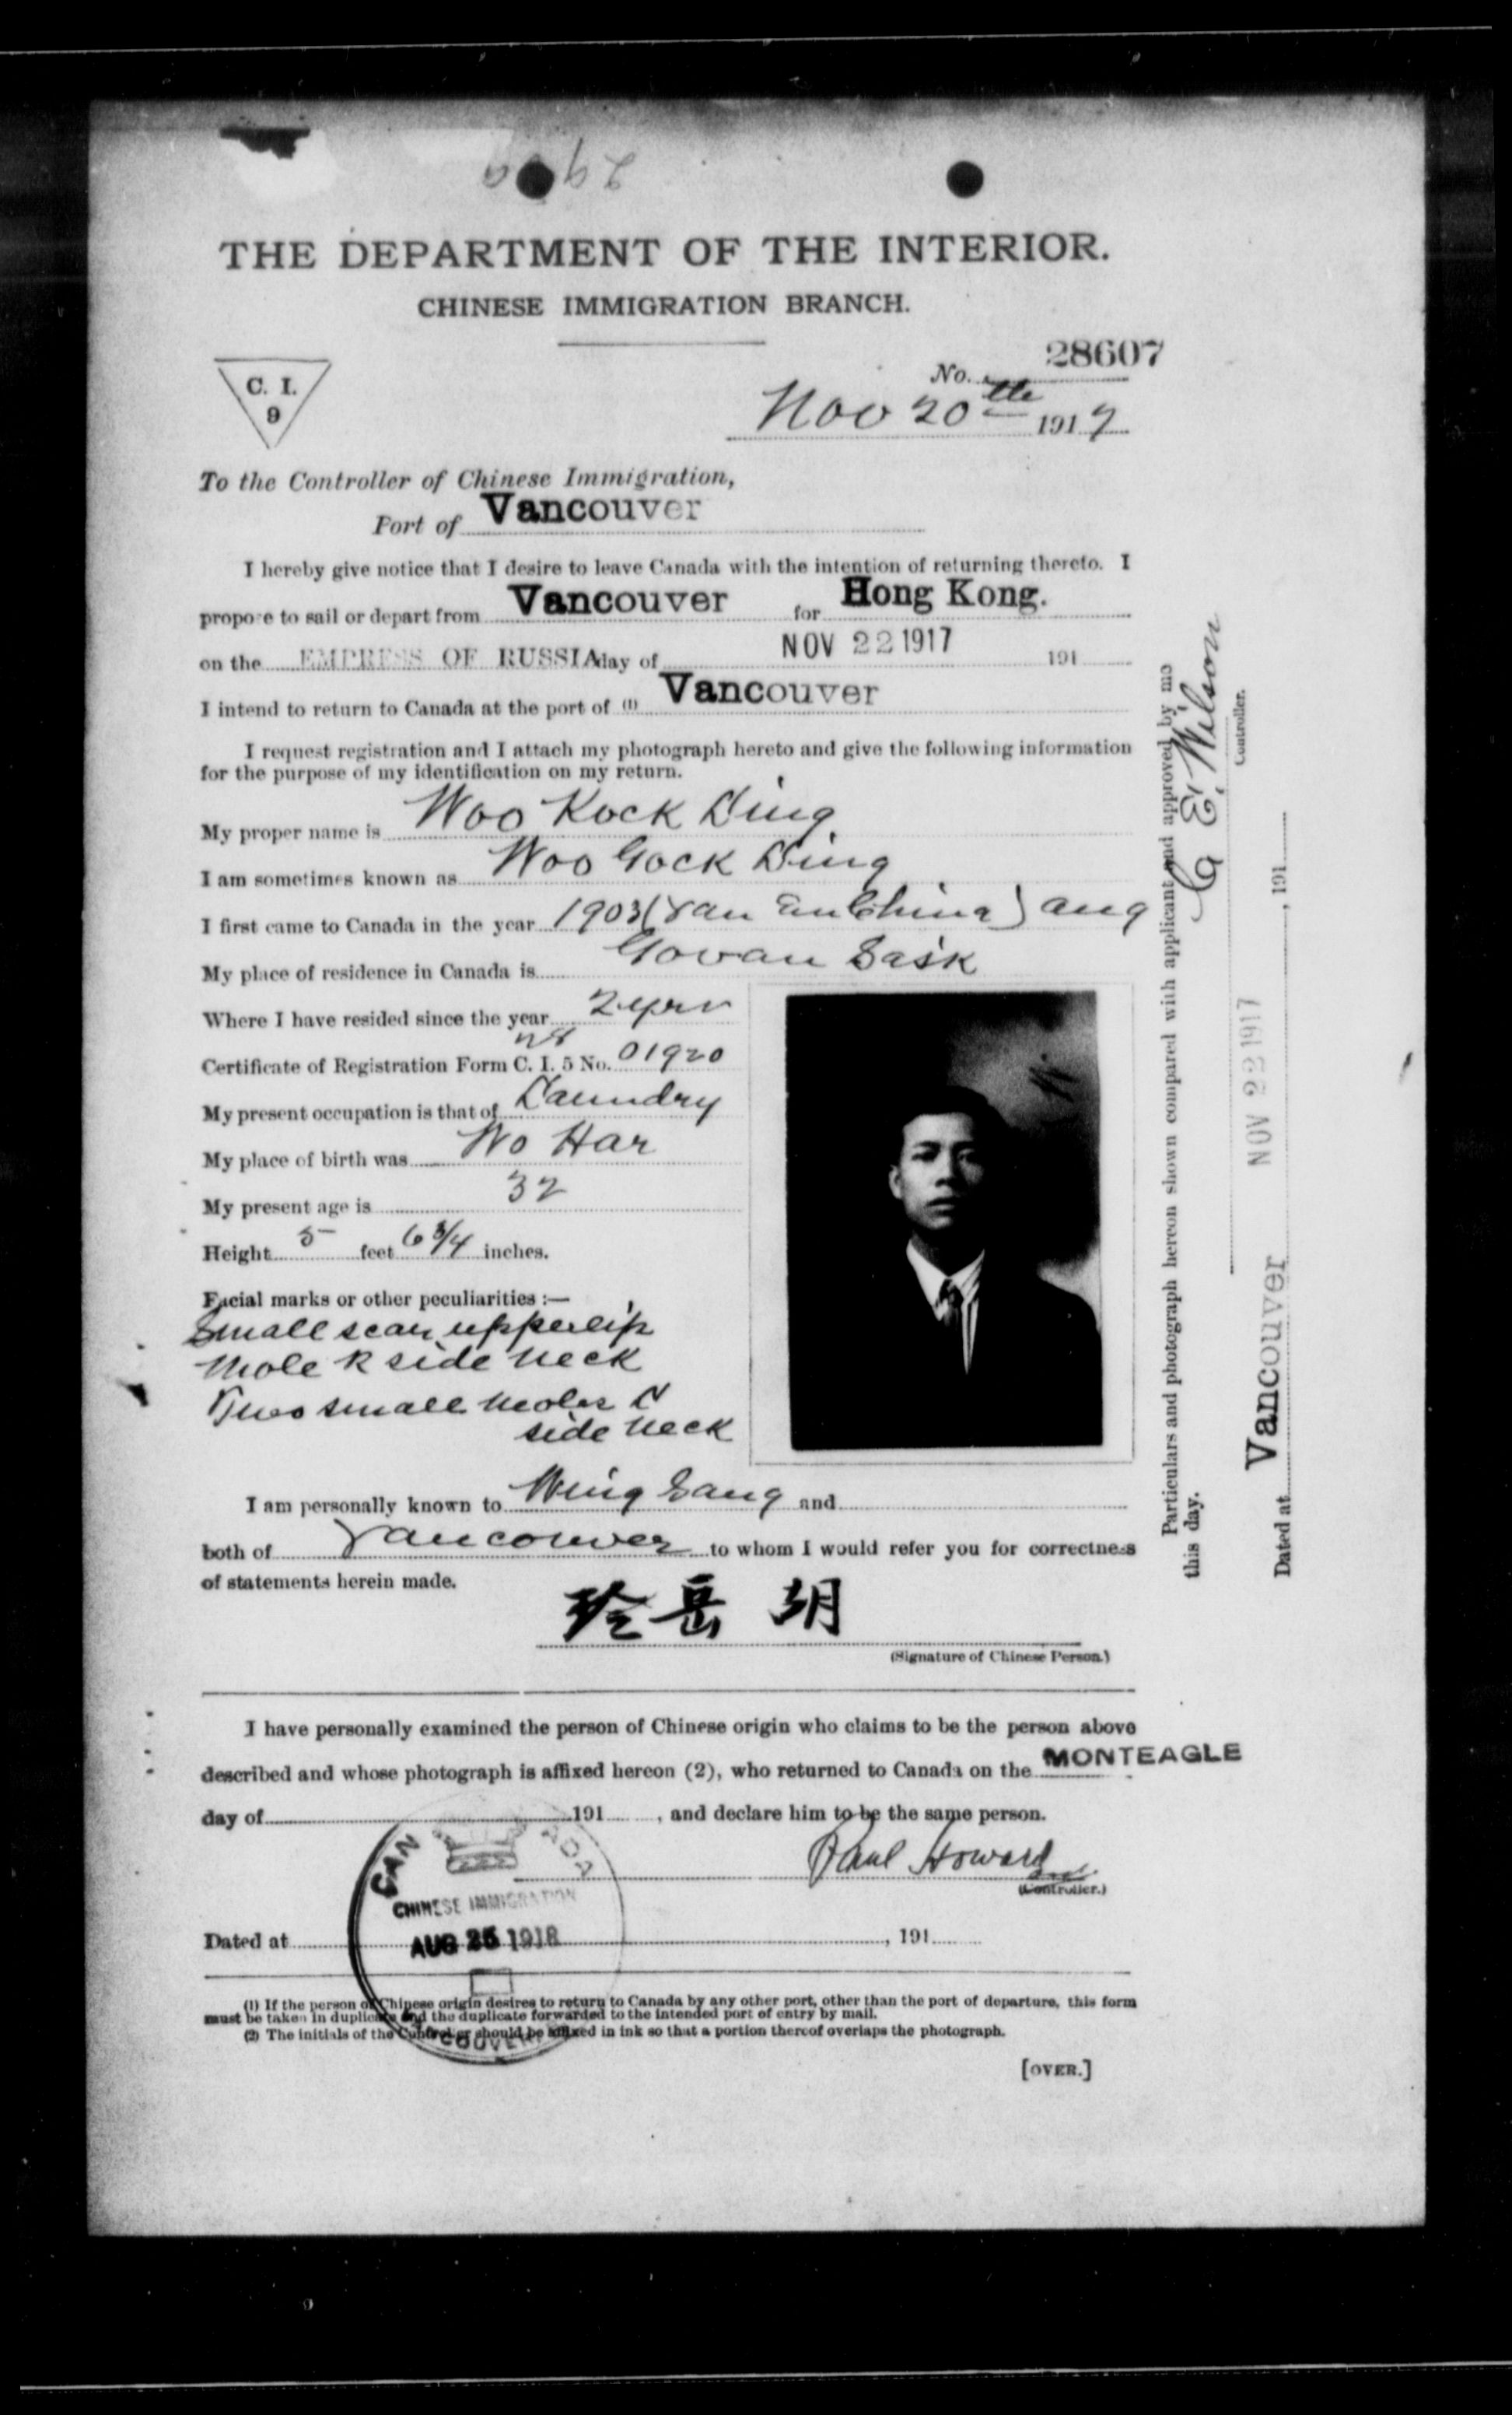 THE DEPARTMENT OF THE INTERIOR.
CHINESE IMMIGRATION BRANCH.
C. I.
9
No. 28607
Nov 20th 1917
To the Controller of Chinese Immigration,
Port of Vancouver
I hereby give notice that I desire to leave Canada with the intention of returning thereto. I
propose to sail or depart from Vancouver for Hong Kong.
on the EMPRESS OF RUSSIA day of NOV 22 1917 191
I intend to return to Canada at the port of (1) Vancouver
I request registration and I attach my photograph hereto and give the following information
for the purpose of my identification on my return.
My proper name is Woo Kock Ding
I am sometimes known as Woo Gock Ding
I first came to Canada in the year 1903 (Van Em China) Aug
My place of residence in Canada is Govan Sask
Where I have resided since the year 2 yrs
Certificate of Registration Form C. I. 5 No. 01920
My present occupation is that of Laundry
My place of birth was Wo Har
My present age is 32
Height 5 feet 6 3/4 inches.
Facial marks or other peculiarities :—
Small scar upper lip
Mole R side neck
Two small moles
side neck
I am personally known to Wing Sang and
both of Vancouver to whom I would refer you for correctness
of statements herein made.
岳 胡
(Signature of Chinese Person.)
I have personally examined the person of Chinese origin who claims to be the person above
described and whose photograph is affixed hereon (2), who returned to Canada on the MONTEAGLE
day of 191 , and declare him to be the same person.
Paul Howard
(Controller.)
CANADA
CHINESE IMMIGRATION
AUG 25 1918
VANCOUVER
Dated at , 191
(1) If the person of Chinese origin desires to return to Canada by any other port, other than the port of departure, this form
must be taken in duplicate and the duplicate forwarded to the intended port of entry by mail.
(2) The initials of the Controller should be affixed in ink so that a portion thereof overlaps the photograph.
[OVER.]
Particulars and photograph hereon shown compared with applicant and approved by me
this day.
Wilson
Controller.
NOV 22 1917
Dated at Vancouver , 191